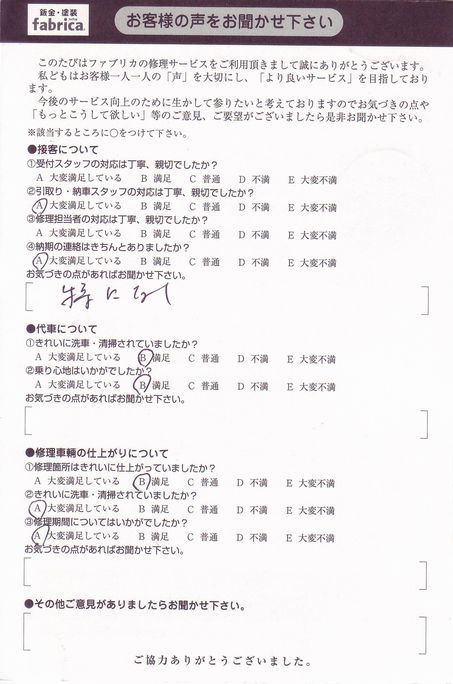 鈑金・塗装
fabrica.
お客様の声をお聞かせ下さい
このたびはファブリカの修理サービスをご利用頂きまして誠にありがとうございます。
私どもはお客様一人一人の「声」を大切にし、「より良いサービス」を目指しており
ます。
今後のサービス向上のために生かして参りたいと考えておりますのでお気づきの点や
「もっとこうして欲しい」等のご意見、ご要望がございましたら是非お聞かせ下さい。
※該当するところに○をつけて下さい。
●接客について
①受付スタッフの対応は丁寧、親切でしたか？
A 大変満足している B 満足 C 普通 D 不満 E 大変不満
②引取り・納車スタッフの対応は丁寧、親切でしたか？
A 大変満足している B 満足 C 普通 D 不満 E 大変不満
③修理担当者の対応は丁寧、親切でしたか？
A 大変満足している B 満足 C 普通 D 不満 E 大変不満
④納期の連絡はきちんとありましたか？
A 大変満足している B 満足 C 普通 D 不満 E 大変不満
お気づきの点があればお聞かせ下さい。
特になし
●代車について
①きれいに洗車・清掃されていましたか？
A 大変満足している B 満足 C 普通 D 不満 E 大変不満
②乗り心地はいかがでしたか？
A 大変満足している B 満足 C 普通 D 不満 E 大変不満
お気づきの点があればお聞かせ下さい。
●修理車輌の仕上がりについて
①修理箇所はきれいに仕上がっていましたか？
A 大変満足している B 満足 C 普通 D 不満 E 大変不満
②きれいに洗車・清掃されていましたか？
A 大変満足している B 満足 C 普通 D 不満 E 大変不満
③修理期間についてはいかがでしたか？
A 大変満足している B 満足 C 普通 D 不満 E 大変不満
お気づきの点があればお聞かせ下さい。
●その他ご意見がありましたらお聞かせ下さい。
ご協力ありがとうございました。